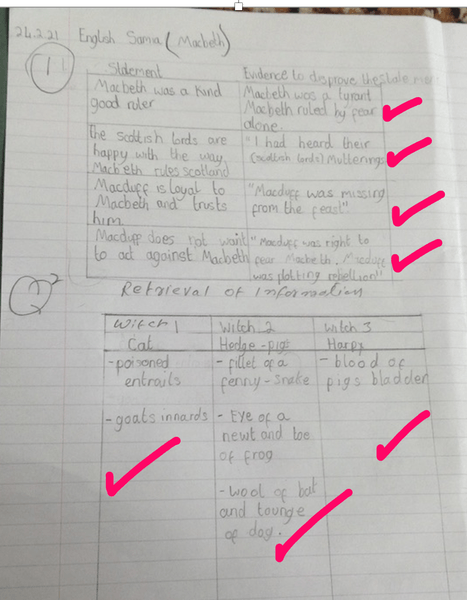 24.2.21 English Samia (Macbeth)
1
Statement
Evidence to disprove the
Macbeth was a kind
good ruler
Macbeth was a tyrant
Macbeth ruled by fear
alone.
the scottish lords are
happy with the way
Macbeth rules scotland
"I had heard their
(Scottish lords) Mutterings
Macduff is loyal to
Macbeth and trusts
him
"Macduff was missing
from the feast"
Macduff does not want
to act against Macbeth
"Macduff was right to
fear Macbeth. Macduff
was plotting rebellion"
2
Retrieval of information
Witch 1
Cat
-poisoned
entrails
-goats innards
Witch 2
Hedge-pigs
- fillet of a
fenny-snake
- Eye of a
newt and toe
of frog
-wool of bat
and tounge
of dog.
Witch 3
Harpy
- blood of
pigs bladder